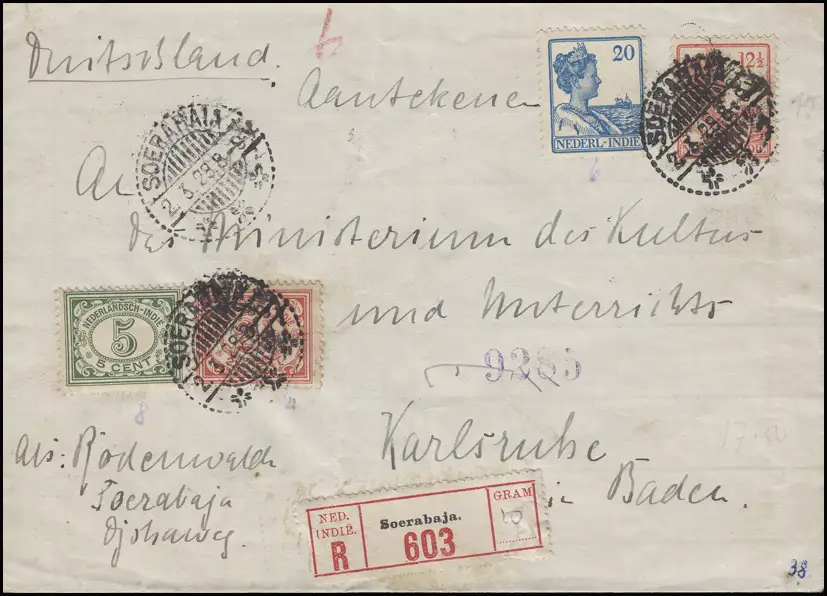 Deutschland.
Aantekenen
20
NEDERL-INDIË
12½
SOERABAJA
2.3.29.8
SOERABAJA
2.3.29.8
An
das Ministerium des Kultus
und Unterrichts
NEDERLANDSCH-INDIË
5
5 CENT
SOERABAJA
2.3.29.8
9285
Karlsruhe
in Baden.
Afs: Rodenwaldt
Soerabaja
NED. INDIË.
R
Soerabaja.
603
GRAM
20
38